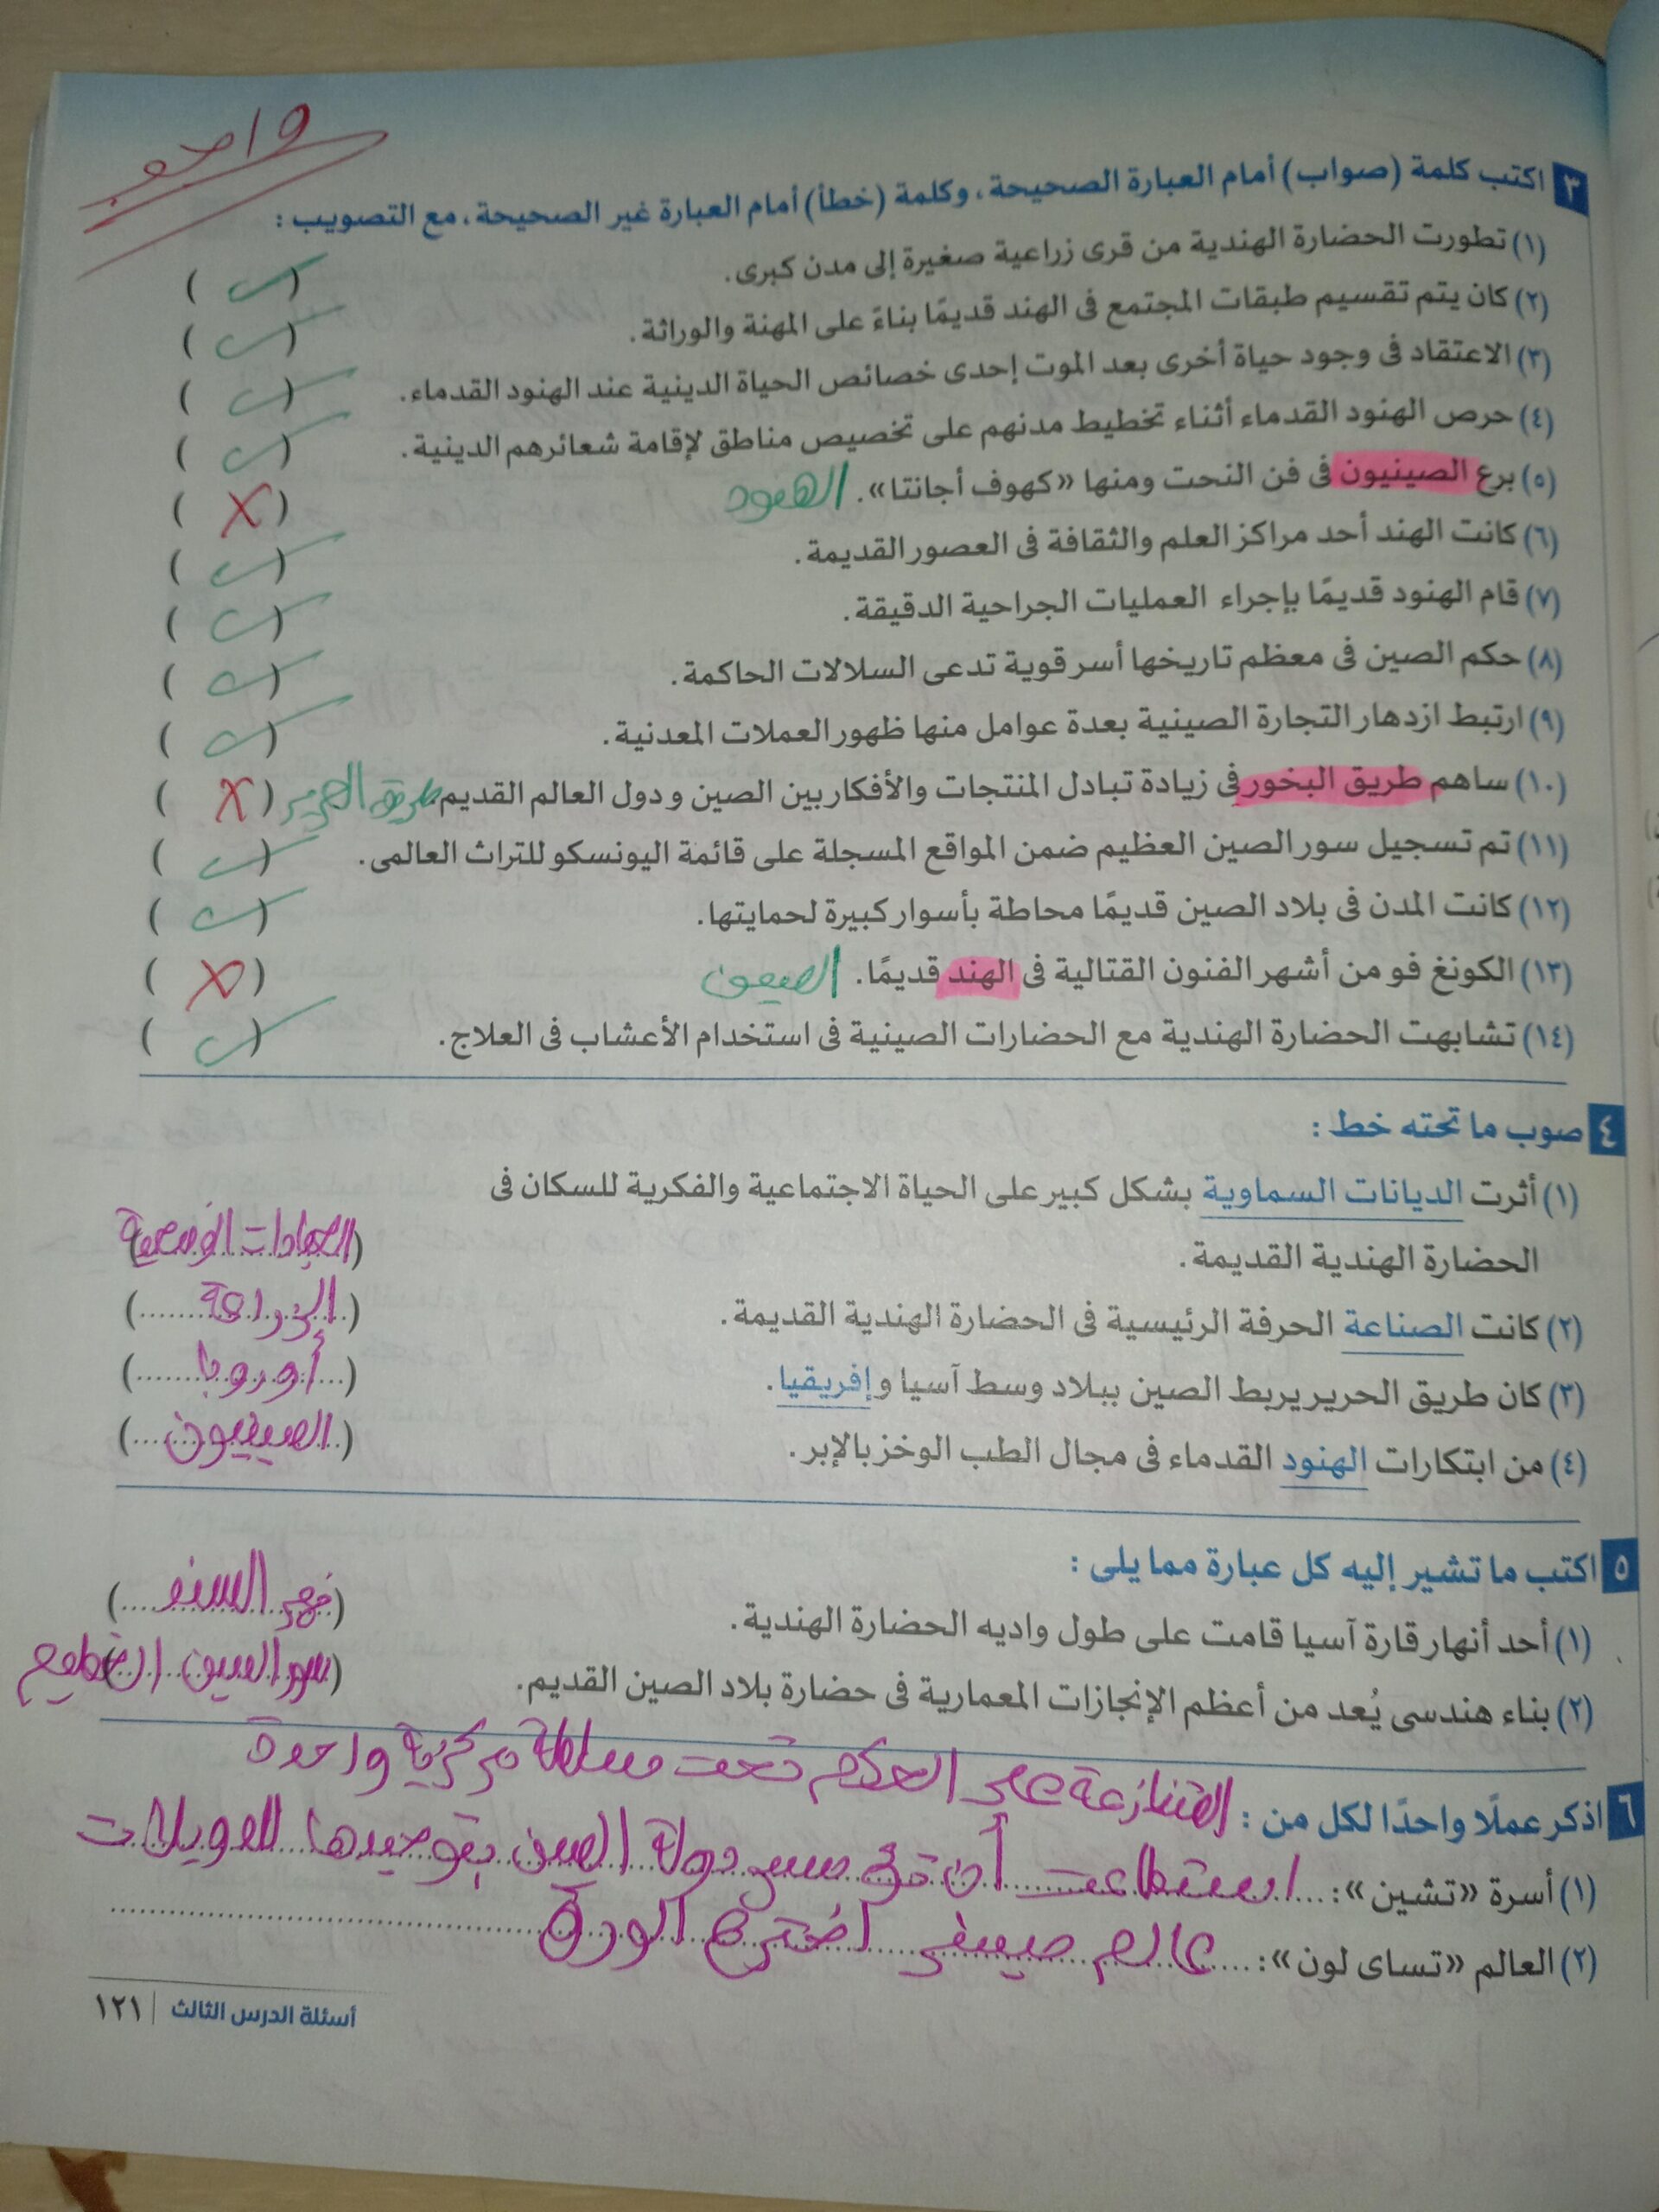 واجب
٣ اكتب كلمة (صواب) أمام العبارة الصحيحة، وكلمة (خطأ) أمام العبارة غير الصحيحة، مع التصويب :
(١) تطورت الحضارة الهندية من قرى زراعية صغيرة إلى مدن كبرى. ( ✓ )
(٢) كان يتم تقسيم طبقات المجتمع فى الهند قديمًا بناءً على المهنة والوراثة. ( ✓ )
(٣) الاعتقاد فى وجود حياة أخرى بعد الموت إحدى خصائص الحياة الدينية عند الهنود القدماء. ( ✓ )
(٤) حرص الهنود القدماء أثناء تخطيط مدنهم على تخصيص مناطق لإقامة شعائرهم الدينية. ( ✓ )
(٥) برع الصينيون فى فن النحت ومنها «كهوف أجانتا». الهنود ( X )
(٦) كانت الهند أحد مراكز العلم والثقافة فى العصور القديمة. ( ✓ )
(٧) قام الهنود قديمًا بإجراء العمليات الجراحية الدقيقة. ( ✓ )
(٨) حكم الصين فى معظم تاريخها أسر قوية تدعى السلالات الحاكمة. ( ✓ )
(٩) ارتبط ازدهار التجارة الصينية بعدة عوامل منها ظهور العملات المعدنية. ( ✓ )
(١٠) ساهم طريق البخور فى زيادة تبادل المنتجات والأفكار بين الصين ودول العالم القديم. طريق الحرير ( X )
(١١) تم تسجيل سور الصين العظيم ضمن المواقع المسجلة على قائمة اليونسكو للتراث العالمى. ( ✓ )
(١٢) كانت المدن فى بلاد الصين قديمًا محاطة بأسوار كبيرة لحمايتها. ( ✓ )
(١٣) الكونغ فو من أشهر الفنون القتالية فى الهند قديمًا. الصين ( X )
(١٤) تشابهت الحضارة الهندية مع الحضارات الصينية فى استخدام الأعشاب فى العلاج. ( ✓ )
٤ صوب ما تحته خط :
(١) أثرت الديانات السماوية بشكل كبير على الحياة الاجتماعية والفكرية للسكان فى
الحضارة الهندية القديمة. (العبادات الوضعية)
(٢) كانت الصناعة الحرفة الرئيسية فى الحضارة الهندية القديمة. (الزراعة)
(٣) كان طريق الحرير يربط الصين ببلاد وسط آسيا وإفريقيا. (أوروبا)
(٤) من ابتكارات الهنود القدماء فى مجال الطب الوخز بالإبر. (الصينيون)
٥ اكتب ما تشير إليه كل عبارة مما يلى :
(١) أحد أنهار قارة آسيا قامت على طول واديه الحضارة الهندية. (نهر السند)
(٢) بناء هندسى يُعد من أعظم الإنجازات المعمارية فى حضارة بلاد الصين القديم. (سور الصين العظيم)
٦ اذكر عملًا واحدًا لكل من : المتنازعة على الحكم تحت سلطة مركزية واحدة
(١) أسرة «تشين»: استطاعت أن تؤسس دولة الصين بتوحيدها للدويلات
(٢) العالم «تساى لون»: عالم صينى اخترع الورق
أسئلة الدرس الثالث | ١٢١